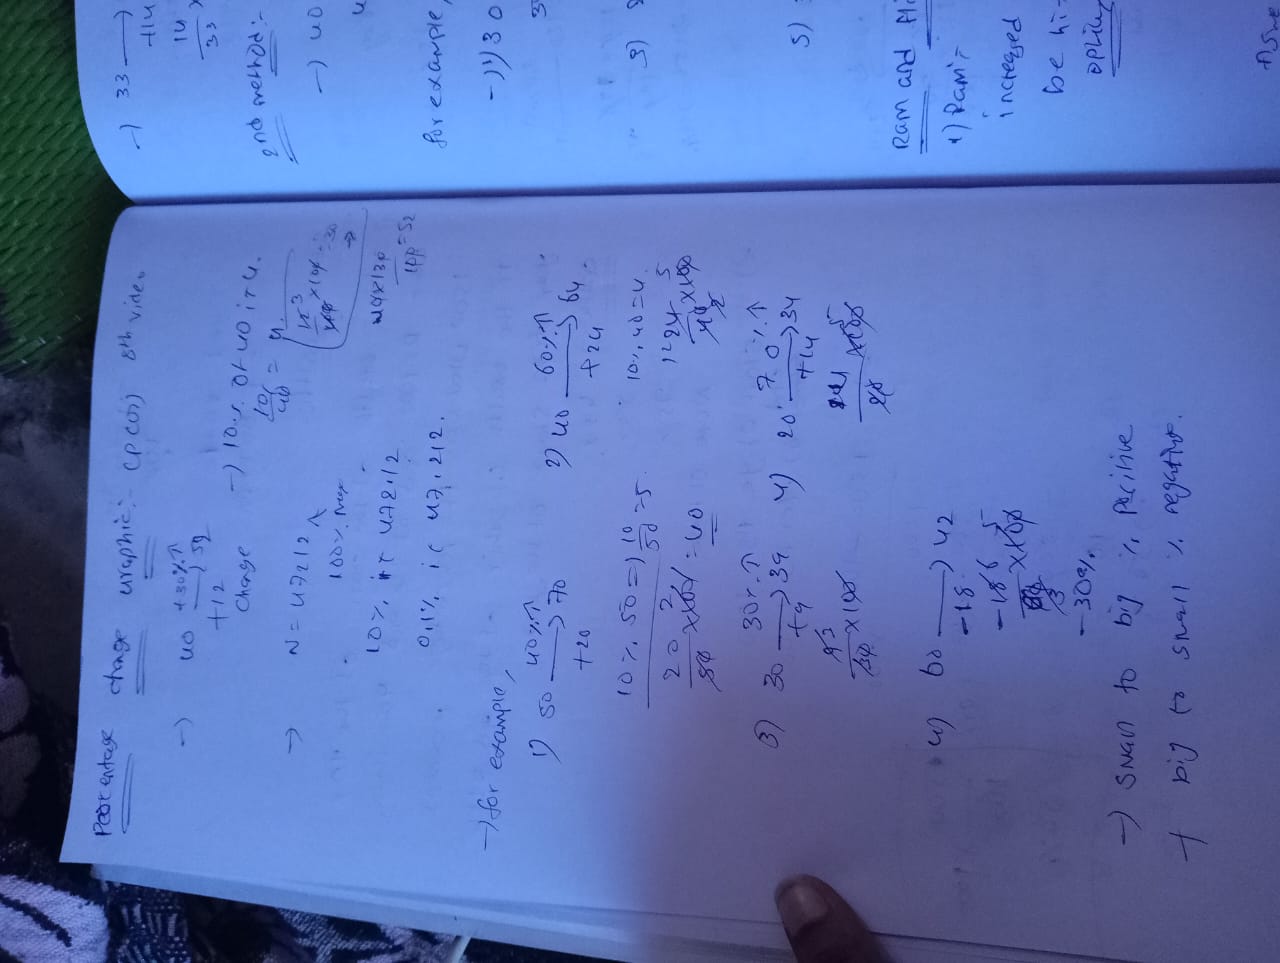 Percentage change graphic:- CP(01) 8th video
→ 40 +30%↑ → 52
+12
change
→ 10% of 40 is 4.
10/40 = 4
12/40 × 100 = 30
40×130/100 = 52
→ N = 47212 ↑
100% max
10% is 4721.2
0.1% is 47.212.
→ for example,
1) 50 40%↑ → 70
+20
10% 50 => 10/50 = 5
20/50 × 100 = 40
2) 40 60%↑ → 64
+24
10% 40 = 4
24/40 × 100
3) 30 30%↑ → 39
+9
9/30 × 100
4) 20 70%↑ → 34
+14
14/20 × 100
4) 60 → 42
-18
-18/60 × 100
-30%
→ small to big % positive
→ big to small % negative.
→ 33 →
+14
14
33
2nd method:-
→ 40
for example,
→ 1) 30
3)
5)
Ram and
1) Ram
increased
be hi-